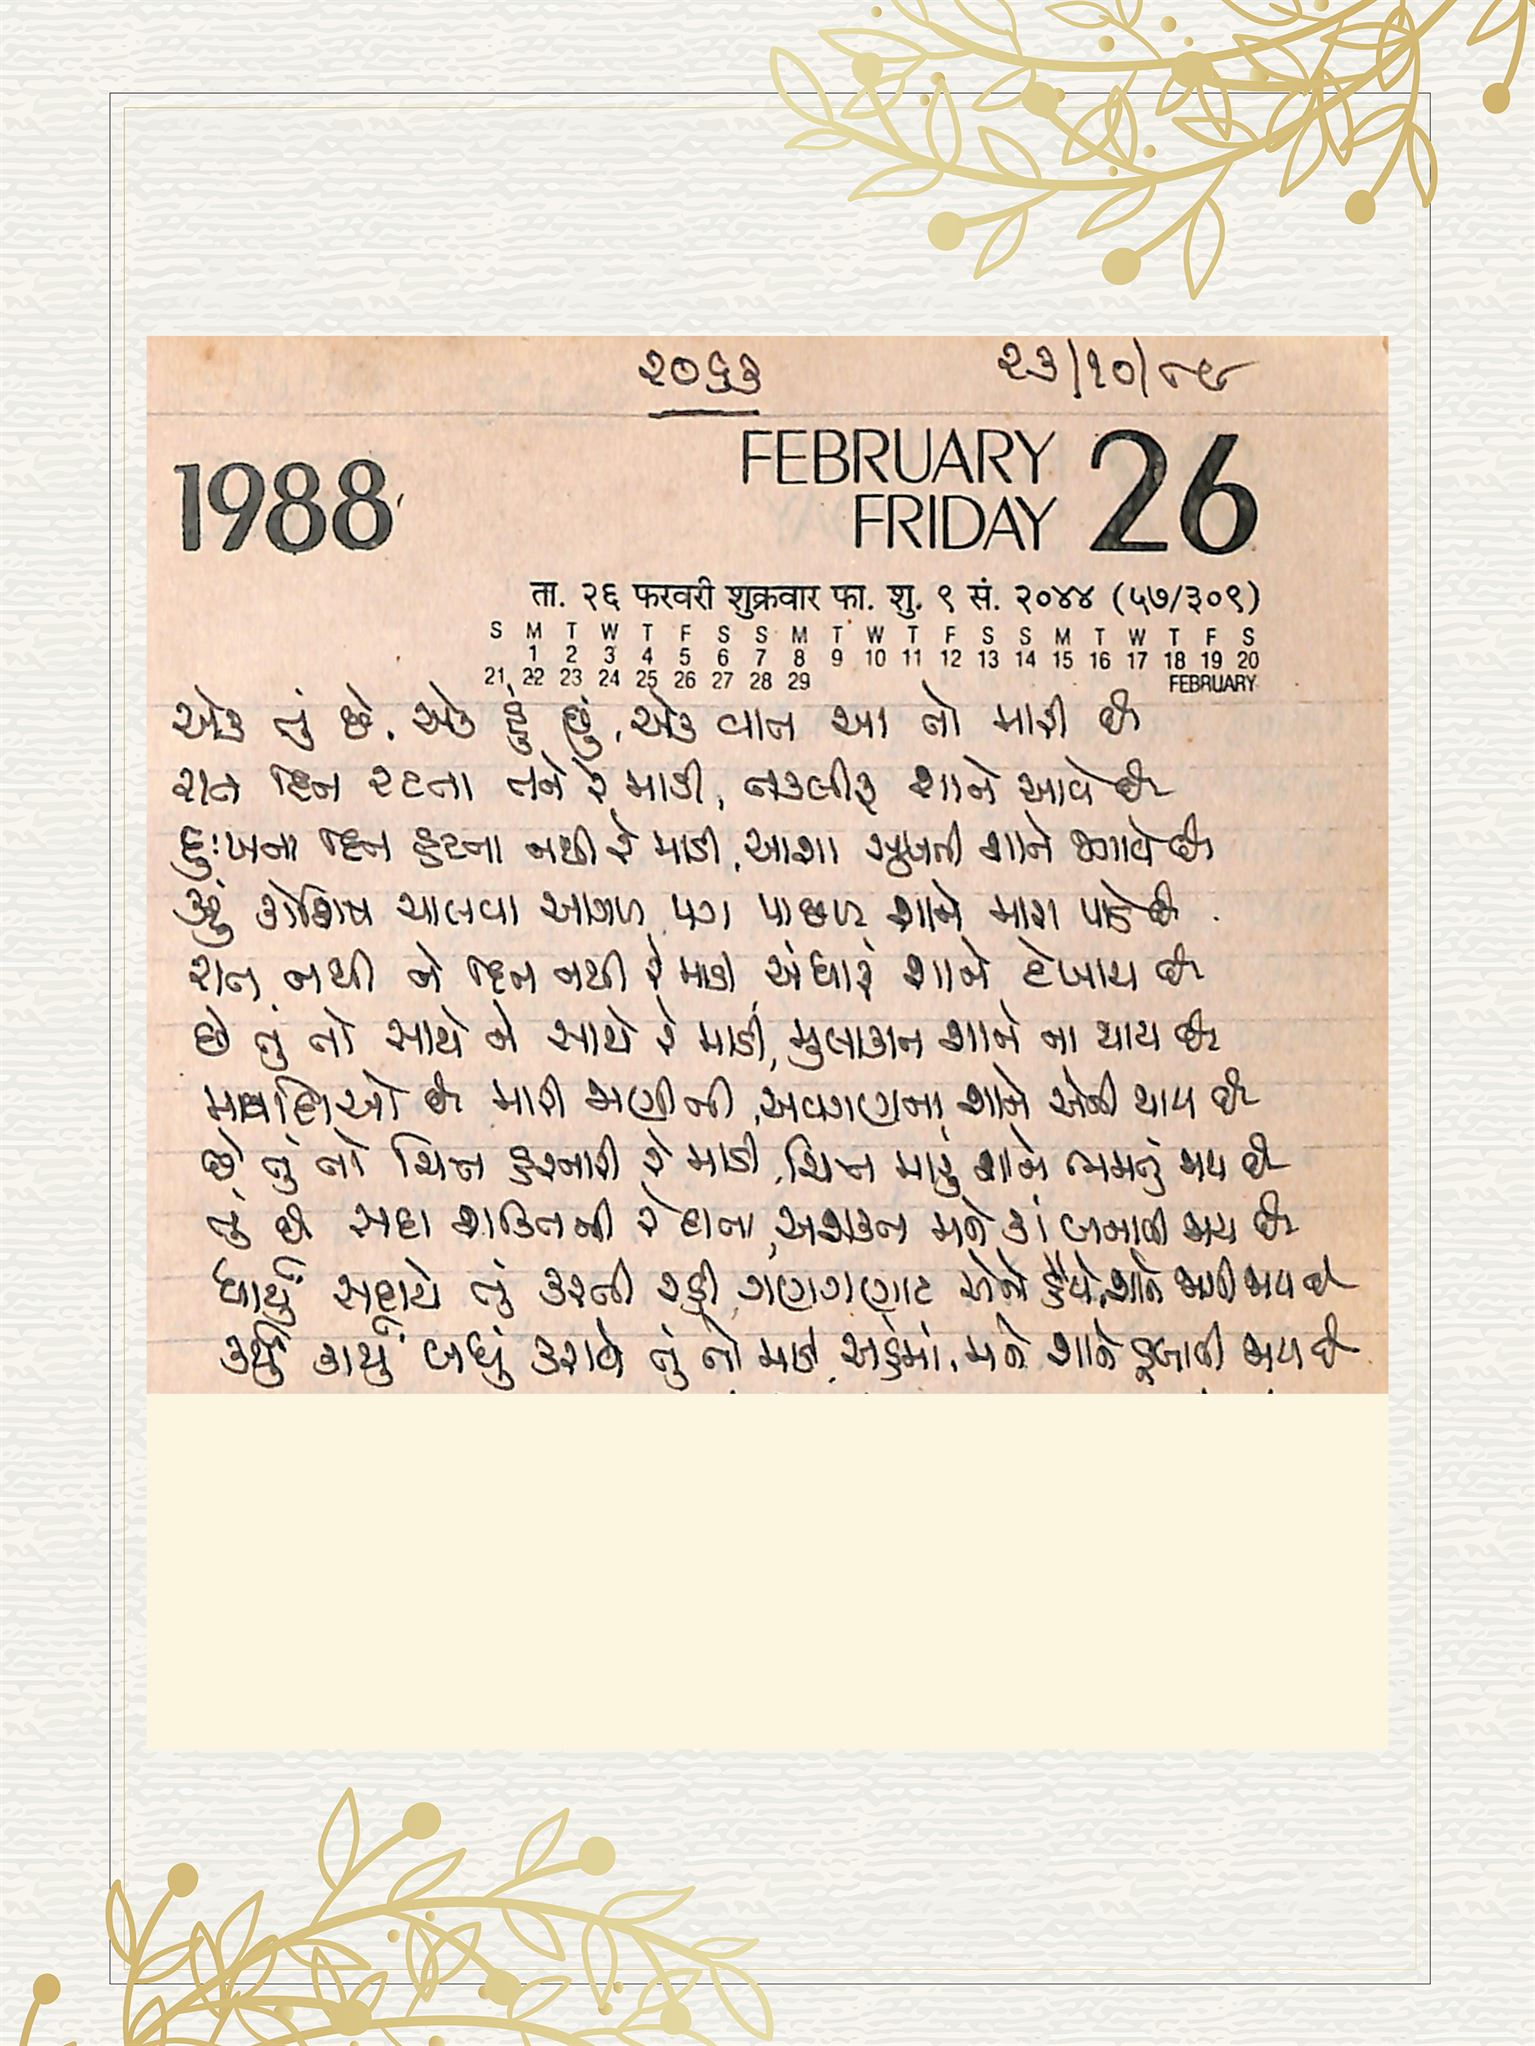 ૨૦૬૩ ૨૩/૧૦/૮૯
1988 FEBRUARY 26
FRIDAY
ता. २६ फरवरी शुक्रवार फा. शु. ९ सं. २०४४ (५७/३०९)
S M T W T F S S M T W T F S S M T W T F S
1 2 3 4 5 6 7 8 9 10 11 12 13 14 15 16 17 18 19 20
21 22 23 24 25 26 27 28 29 FEBRUARY
એક તું છે, એક હું છું, એક વાત આ તો મારી છે
રાત દિન રટતા તને રે માડી, તકલીફ શાને આવે છે
દુઃખના દિન ફુટતા નથી રે માડી, આશા સુખની શાને જગાવે છે
કરું કોશિષ ચાલવા આગળ, પગ પાછળ શાને મારા પાડે છે
રાત નથી ને દિન નથી રે માડી, અંધારું શાને દેખાય છે
છે તું તો સાથે ને સાથે રે માડી, મુલાકાત શાને ના થાય છે
છે મારી જાણીતી, અવગણના શાને એની થાય છે
છે તું તો ચિત્ત હરનારી રે માડી, ચિત્ત મારું શાને ભમતું જાય છે
તું છે સદા શક્તિની રે દાતા, અશક્ત મને કાં બનાવી જાય છે
ધાર્યું સદાયે તું કરતી રહી, ગણગણાટ હૈયે શાને જાગી જાય છે
કર્યું કાર્યું બધું કરાવે તું તો માત, અહંમાં મને શાને ડૂબાવી જાય છે